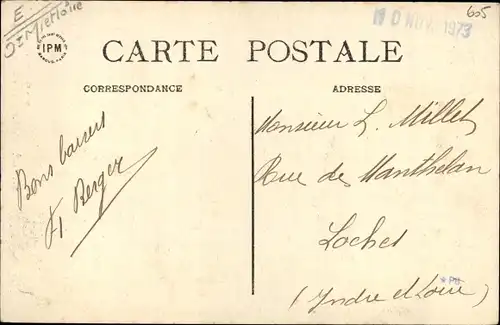 E
605
10 NOV. 1973
IPM
CARTE POSTALE
CORRESPONDANCE
ADRESSE
Bons baisers
Berger
Monsieur L. Millet
Rue de Manthelan
Loches
(Indre et Loire)